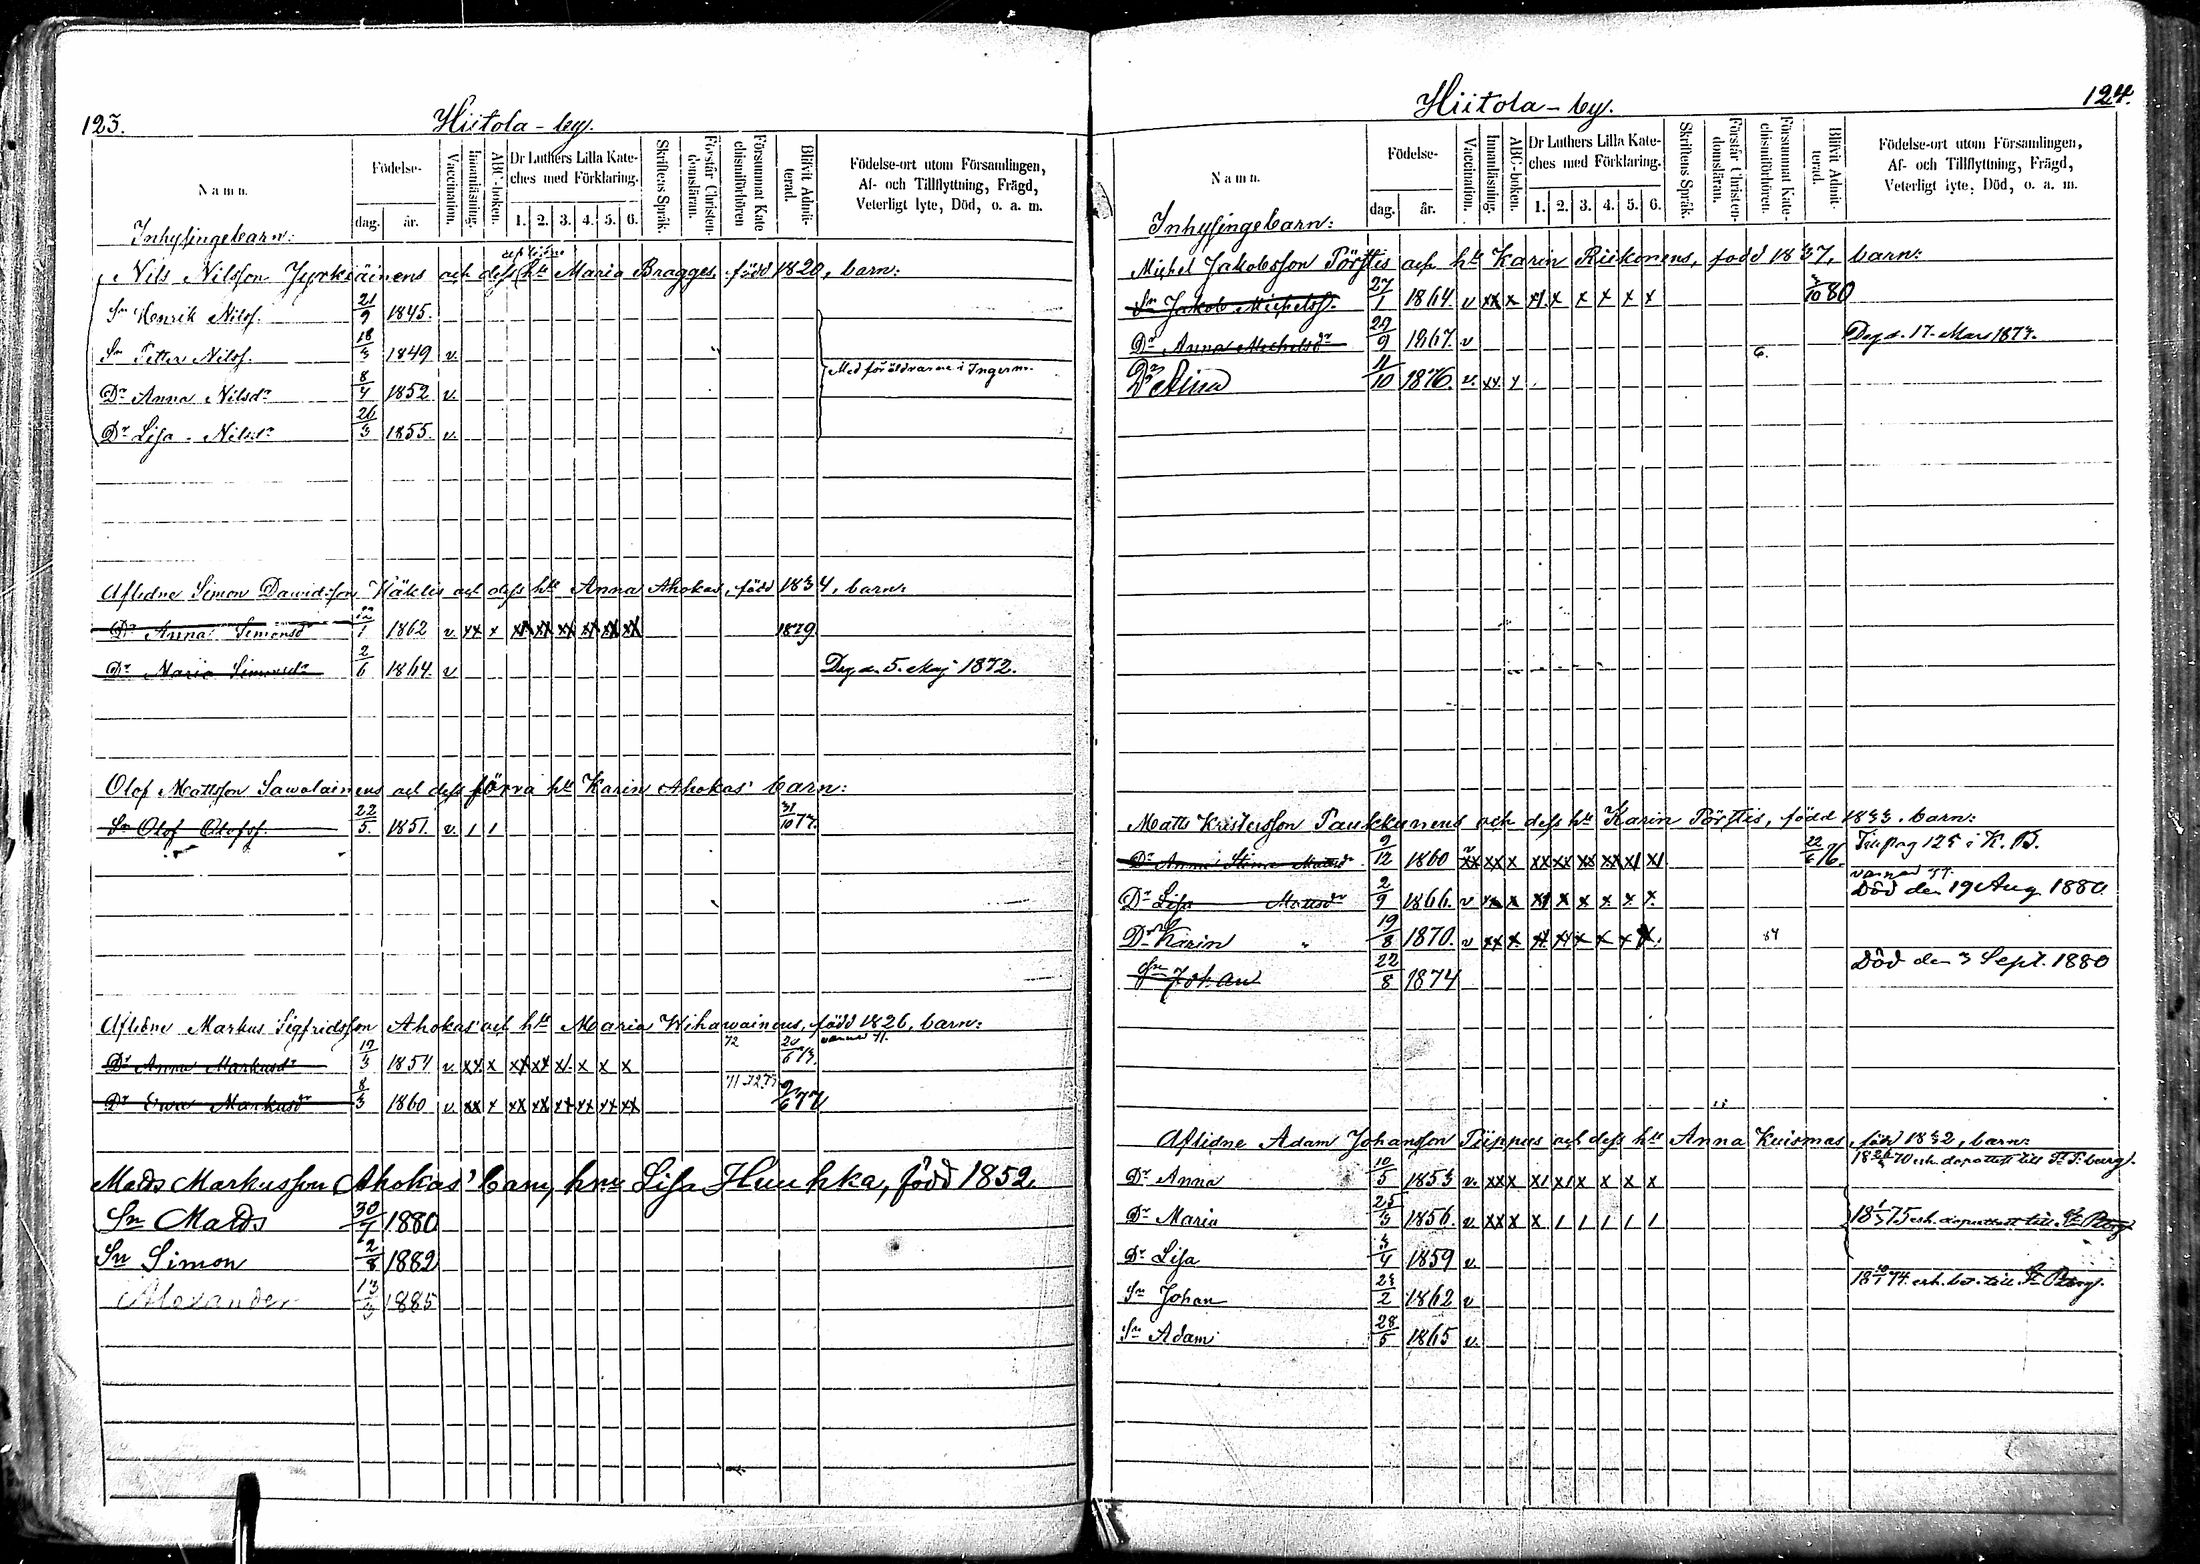 123.
Hiitola - by.
Namn.
Födelse-
dag.
år.
Vaccination.
Innanläsning.
ABC-boken.
Dr Luthers Lilla Kate-
ches med Förklaring.
1. 2. 3. 4. 5. 6.
Skriftens Språk.
Förstår Christen-
domsläran.
Försummat Kate
chismiförhören
Blifvit Admit-
terad.
Födelse-ort utom Församlingen,
Af- och Tillflyttning, Frägd,
Veterligt lyte, Död, o. a. m.
Inhysingebarn:
Nils Nilsson Jyrkiäinens och dess hu Maria Bragges, född 1820, barn:
Sn Henrik Nilss. 21/9 1845.
Sn Petter Nilss. 18/3 1849 v.
Med föräldrarne i Ingerm.
Dr Anna Nilsdr 8/4 1852 v.
Dr Lisa Nilsdr 26/3 1855. v.
Aflidne Simon Dawidsson Käklis och dess hu Anna Ahokas, född 1834, barn:
Dr Anna Simonsdr /1 1862 v. xx x xx xx xx xx xx xx 1879.
Dr Maria Simonsdr 2/6 1864. v Dog d. 5. Maj 1872.
Olof Mattsson Sawolainens och dess förra hu Karin Ahokas' barn:
Sn Olof Olofss. 22/5. 1851. v. 1 1 31/10 77.
Aflidne Markus Sigfridsson Ahokas' och hu Maria Wihawainens, född 1826, barn:
Dr Anna Markusdr 12/3 1854 v. xx x xx xx x x x x 72 /6 73. varnad 71.
Dr Ewa Markusdr 8/3 1860 v. xx x xx xx xx xx xx xx 71 72 73 9/6 77
Mats Markusson Ahokas' barn, hru Lisa Huuhka, född 1852.
Sn Mats 30/7 1880
Sn Simon 2/8 1882
Alexander 13/3 1885
124.
Hiitola - by.
Namn.
Födelse-
dag.
år.
Vaccination.
Innanläsning.
ABC-boken.
Dr Luthers Lilla Kate-
ches med Förklaring.
1. 2. 3. 4. 5. 6.
Skriftens Språk.
Förstår Christen-
domsläran.
Försummat Kate-
chismiförhören.
Blifvit Admit-
terad.
Födelse-ort utom Församlingen,
Af- och Tillflyttning, Frägd,
Veterligt lyte, Död, o. a. m.
Inhysingebarn:
Michel Jakobsson Pörstis och hu Karin Riikonens, född 1837, barn:
Sn Jakob Michelss. 27/1 1864. v xx x x1 x x x x x /10 80
Dr Anna Michelsdr 29/9 1867. v Dog d. 17. Mars 1873.
Dr Stina 11/10 1876. v. xx x 6.
Matts Kristersson Paukkunens och dess hu Karin Pörstis, född 1833. barn:
Dr Anna Stina Mattsdr 9/12 1860 v xx xx x xx xx xx xx x1 x1 22/6 76. Till pag 125 i K. B.
varnad 77.
Dr Lisa Mattsdr 2/9 1866. v xx x x1 x x x x x. Död den 19 Aug 1880
Dr Karin " 19/8 1870. v xx x x1 xx x x x x. 84
Sn Johan 22/8 1874 Död den 3 Sept. 1880
Aflidne Adam Johansson Piippus och dess hu Anna Kuismas, född 1832, barn:
Dr Anna 10/5 1853 v. xx x x1 x1 x x x x 70 erh. depattest till St P.burg.
Dr Maria 25/3 1856. v. xx x x 1 1 1 1 1 18 1/3 75 erh. depattest till St Pburg
Dr Lisa 3/4 1859 v.
Sn Johan 23/2 1862 v 18 74. erh. bet. till St Pburg.
Sn Adam 28/5 1865 v.